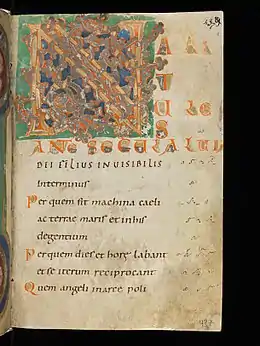 N A
T
U
S
ANTE SECULA
DII FILIUS INVISIBILIS
Interminus
Per quem fit machina caeli
ac terrae maris et in his
degentium
Per quem dies et horę labant
et se iterum reciprocant
Quem angeli in arce poli